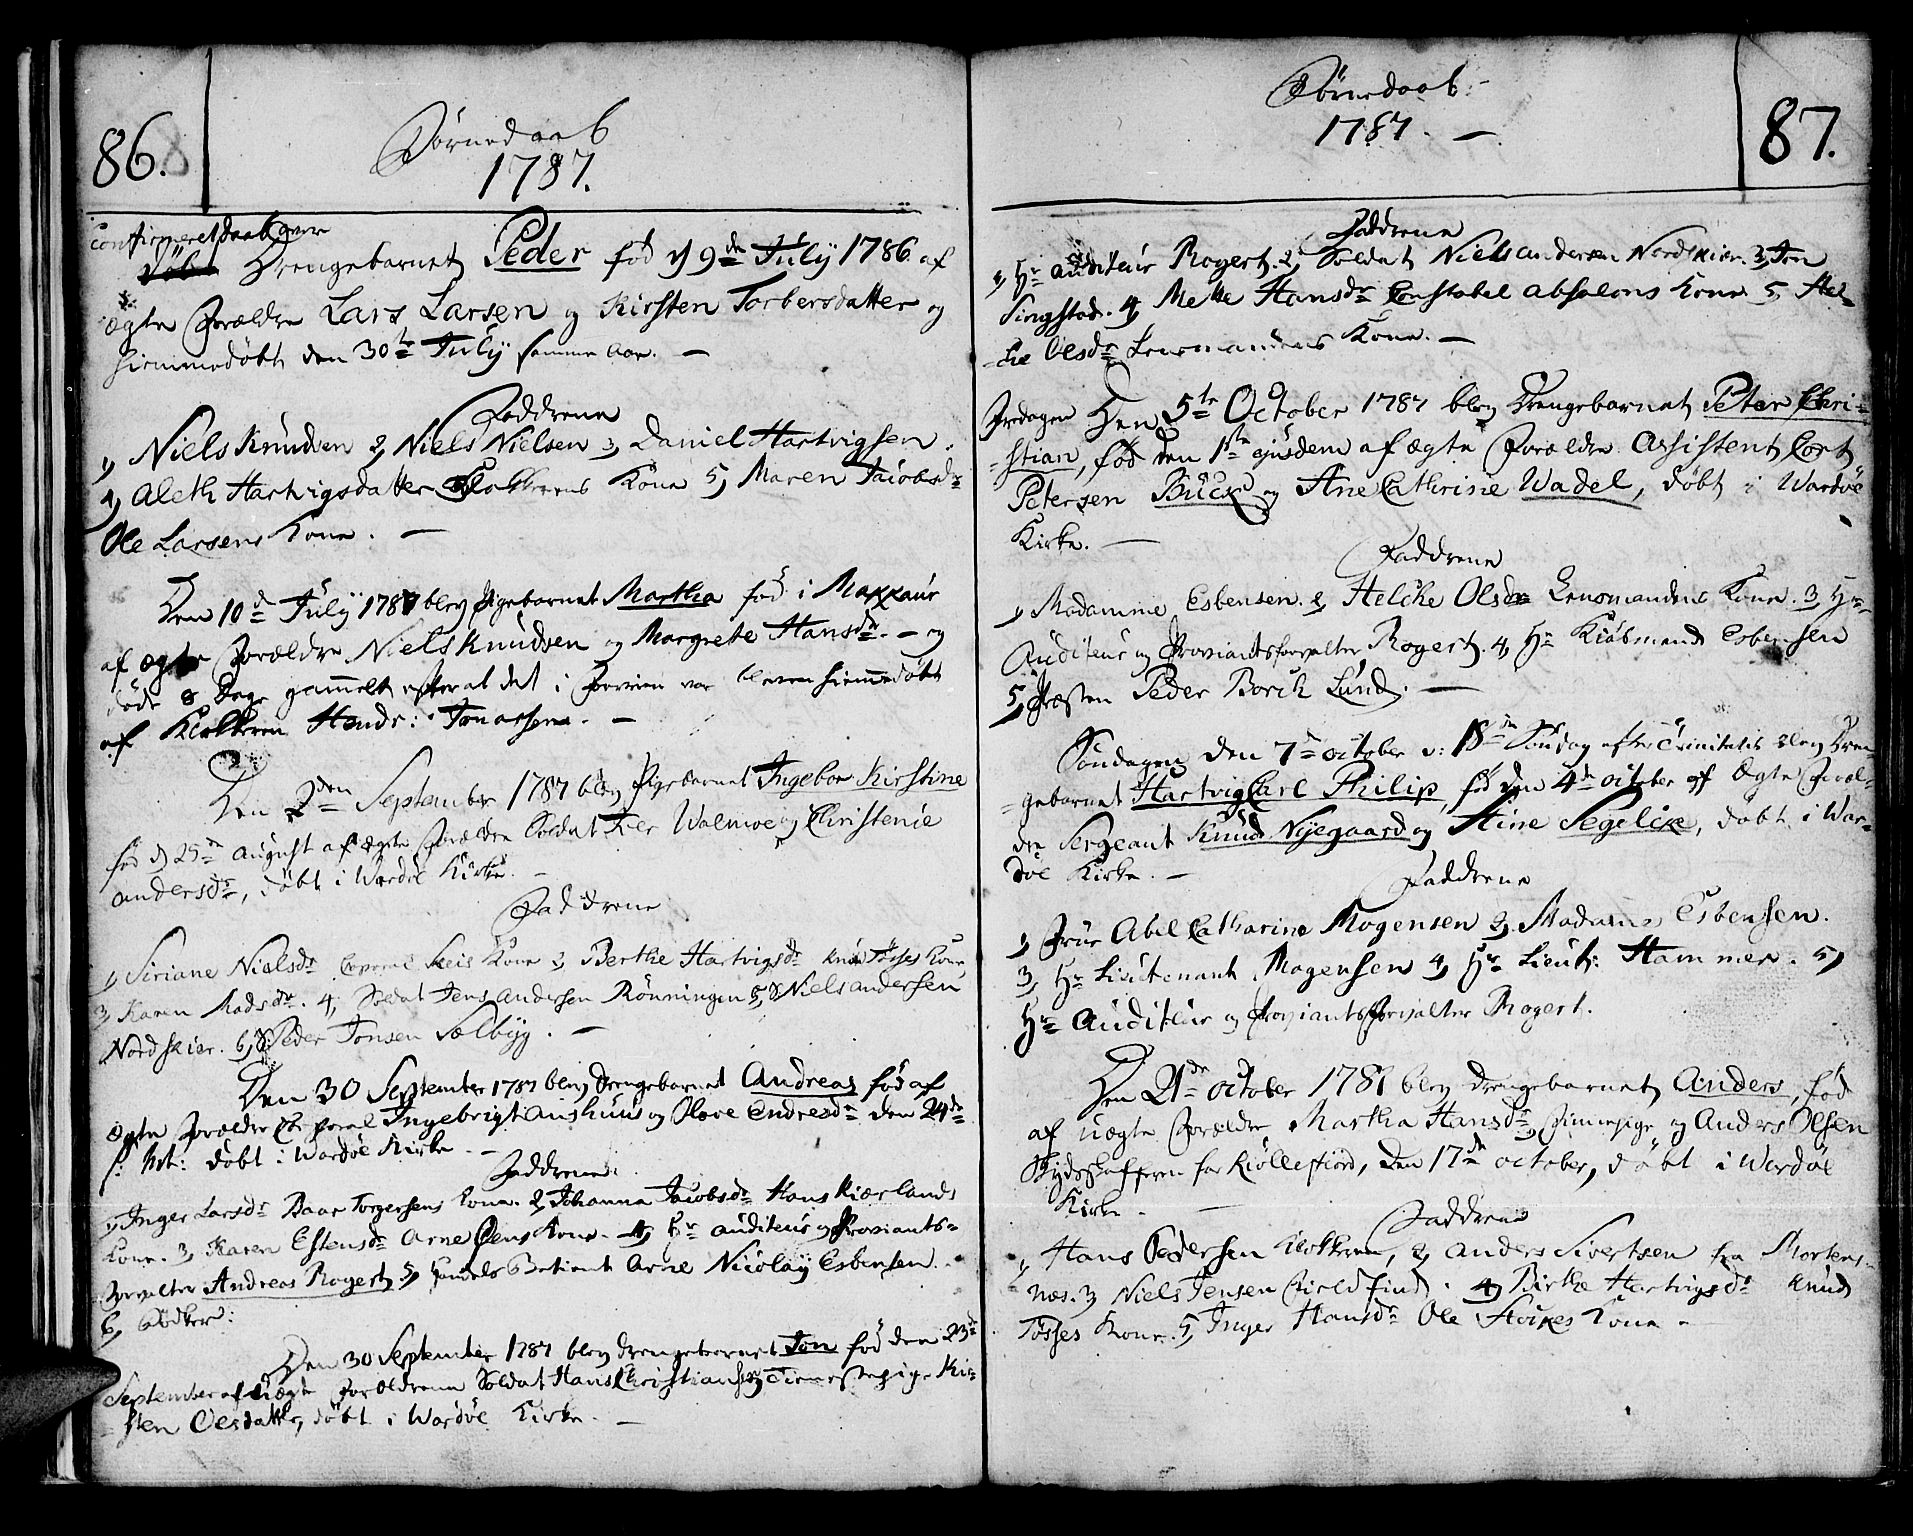 86.
Börnedaab
1787.
confirmeret daaben over
døbt Drengebarnet Peder fød d 9de July 1786 af
ægte Forældre Lars Larsen og Kirsten Torbersdatter og
hiemmedøbt den 30te July samme Aar. —
Faddrene
1, Niels Knudsen 2, Niels Nielsen 3, Daniel Hartvigsen
4, Aleth Hartvigsdatter Klokkerens Kone 5, Maren Jacobsdr
Ole Larsens Kone. —
Den 10de July 1787 blev Pigebarnet Martha fød i Makkaur
af ægte Forældre Niels Knudsen og Margrete Hansdr. — og
døde 8 Dage gammelt efterat det i Forveien var bleven hiemmedøbt
af Klokkeren Hendr: Jonassen. —
Den 2den September 1787 blev Pigebarnet Ingebor Kirstine
fød d 25de August af ægte Forældre Soldat Iver Walmoe og Christenie
Andersdr, døbt i Wardöe Kirke. —
Faddrene
1, Siriane Nielsdr Corporal Kone 2, Berthe Hartvigsdr Knud Tosses Kone
3, Karen Madsdr. 4, Soldat Jens Andersen Rönningen 5, S Niels Andersen
Nordskier. 6, S Peder Jonsen Selbyg. —
Den 30 September 1787 blev Drengebarnet Andreas fød af
Ægte Forældre Corporal Ingebrigt Aushuus og Olave Endresdr den 24de
s: Mt: døbt i Wardöe Kirke. —
Faddrene
1, Inger Larsdr Baar Torgersens Kone. 2, Johanna Jacobsdr Hans Kierlands
Kone. 3, Karen Estensdr Arne Kone. 4, Hr Auditeur og Proviants-
Forvalter Andreas Rogert 5, Handels Betient Arne Nicolay Esbensen.
6, Bödker:
Den 30 September 1787 blev Drengebarnet Jon fød den 23de
September af Uægte Forældrene Soldat Hans Christiansen og Tienestepige Kir-
sten Olesdatter, døbt i Wardöe Kirke. —
Börnedaab
1787. —
87.
Faddrene
1, Hr Auditeur Rogert. 2, Soldat Niels Andersen Nordskier. 3, Jon
Singstad. 4, Mette Hansdr Constabel Absalons Kone 5, Hel-
che Olesdr Lensmandens Kone. —
Fredagen Den 5te October 1787 blev Drengebarnet Peter Chri-
stian, fød den 1ste ejusdem af ægte Forældre Assistent Cort
Petersen Buck og Ane Cathrine Wadel, døbt i Wardöe
Kirke. —
Faddrene
1, Madamme Esbensen. 2, Helche Olsdr Lensmandens Kone. 3, Hr
Auditeur og Proviantsforvalter Rogert. 4, Hr Kiöbmand Esbensen
5, Præsten Peder Borch Lund. —
Söndagen den 7de October v: 18de Söndag efter Trinitatis blev Dren-
gebarnet Hartvig Carl Philip, fød den 4de October af Ægte Foræl-
dre Sergeant Knud Nyegaard og Stine Segelcke, døbt i War-
döe Kirke. —
Faddrene
1, Frue Abel Catharine Mogensen 2, Madame Esbensen.
3, Hr Lieutenant Mogensen 4, Hr Lieut: Hammer. 5,
Hr Auditeur og Proviantsforvalter Rogert.
Den 21de October 1787 blev Drengebarnet Anders, fød
af uægte Forældre Martha Hansdr, Finnepige og Anders Olsen
Skydskafferen for Kiöllefiord, den 17de October, døbt i Wardöe
Kirke. —
Faddrene
1, Hans Pedersen Klokkeren, 2, Anders Sivertsen fra Mortens-
næs. 3, Niels Jensen Fieldfind. 4, Birthe Hertvigsdr Knud
Tosses Kone. 5, Inger Hansdr Ole Kone —